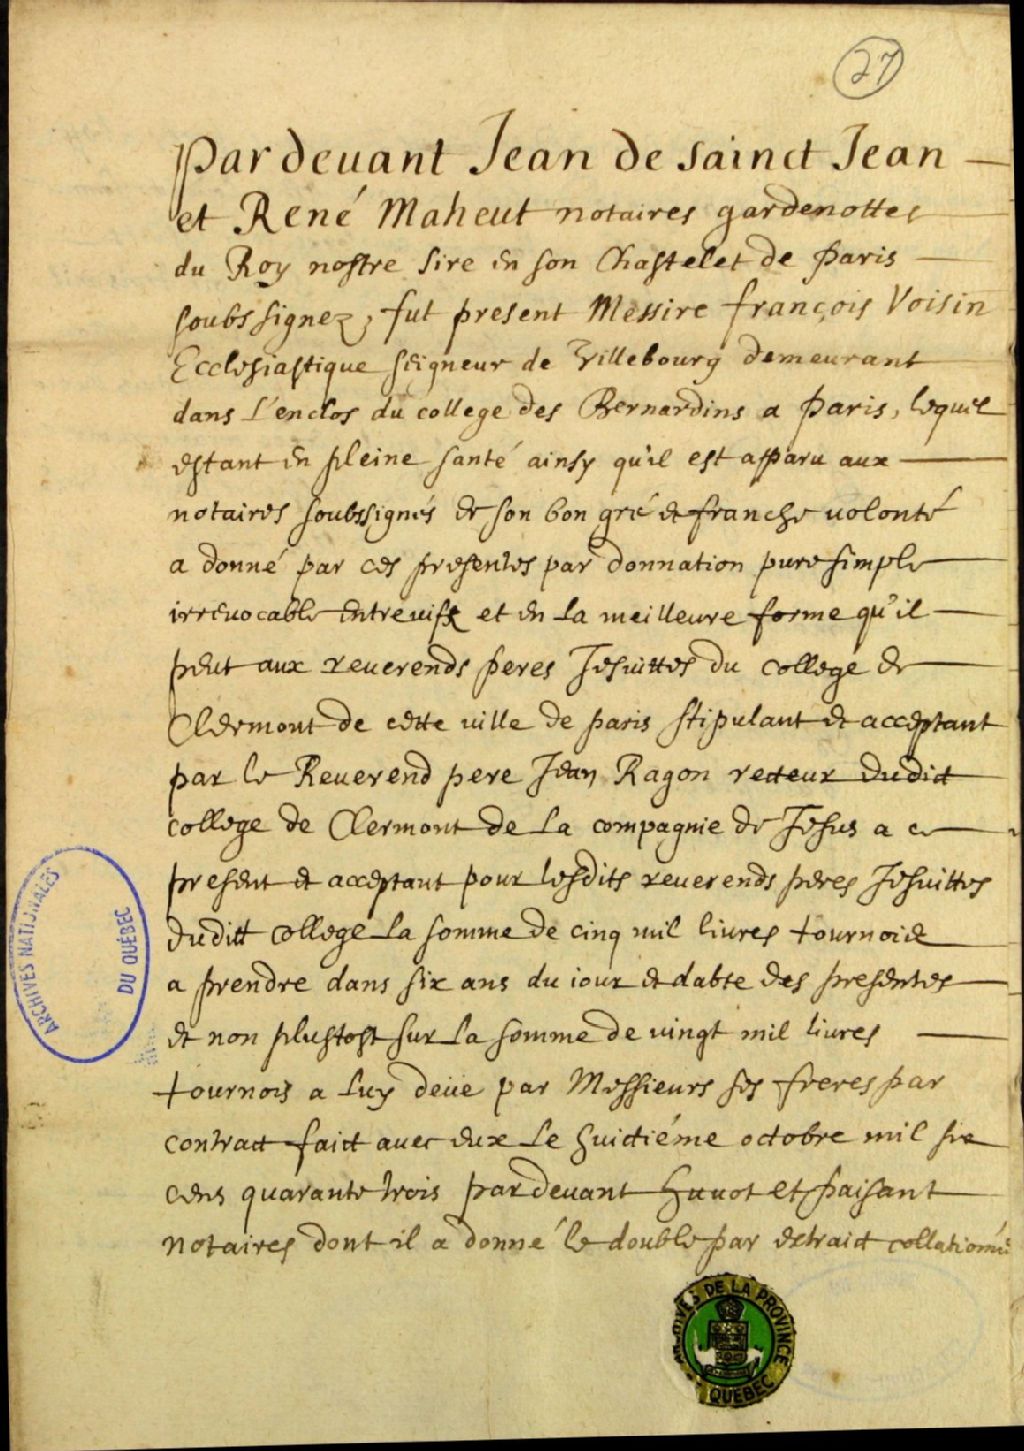 27
Par devant Jean de sainct Jean
et René Maheut notaires gardenottes
du Roy nostre sire en son Chastelet de Paris
soubssignez, fut present Messire françois Voisin
Ecclesiastique seigneur de Villebourg demeurant
dans l'enclos du college des Bernardins a Paris, lequel
estant en pleine santé ainsy qu'il est apparu aux
notaires soubssignés de son bon gré et franche volonté
a donné par ces presentes par donnation pure simple
irrevocable entrevifs et en la meilleure forme qu'il
peut aux reuerends peres Jesuittes du college de
Clermont de cette ville de paris stipulant et acceptant
par le Reuerend pere Jean Ragon recteur dudict
college de Clermont de la compagnie de Jesus a ce
present et acceptant pour lesdits reuerends peres Jesuittes
duditt college la somme de cinq mil liures tournois
a prendre dans six ans du iour et dabte des presentes
et non plustost sur la somme de vingt mil liures
tournois a luy deüe par Messieurs ses freres par
contract faict auec eux le huictiéme octobre mil six
cens quarante trois pardeuant Huuot et paisant
notaires dont il a donné le double par extraict collationné
ARCHIVES NATIONALES
DU QUÉBEC
ARCHIVES DE LA PROVINCE
QUEBEC